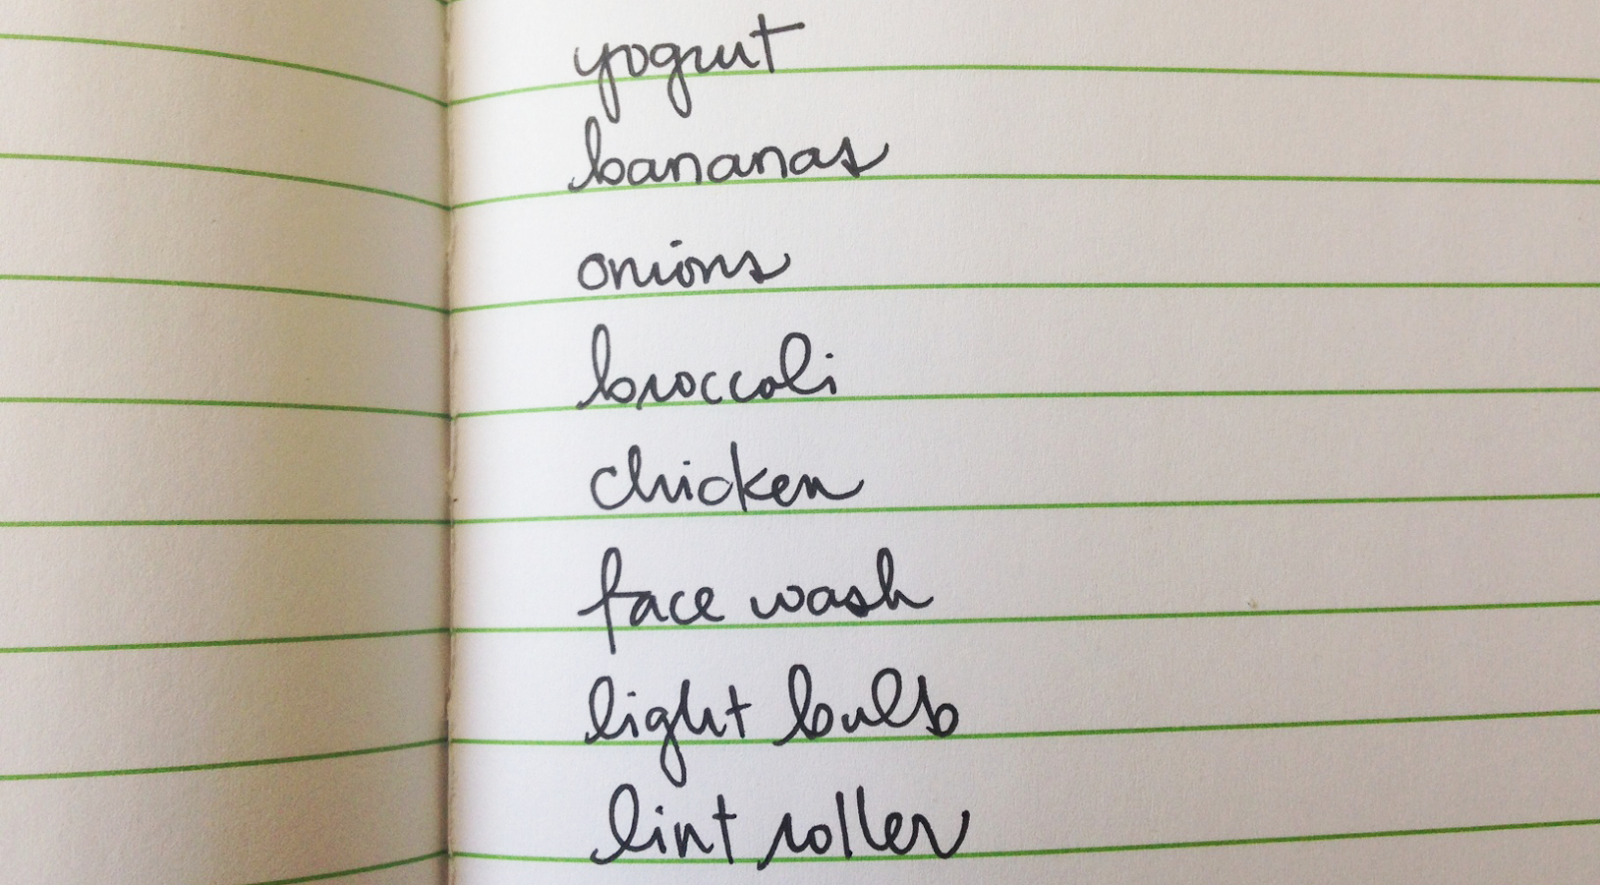 yogrut
bananas
onions
broccoli
chicken
face wash
light bulb
lint roller